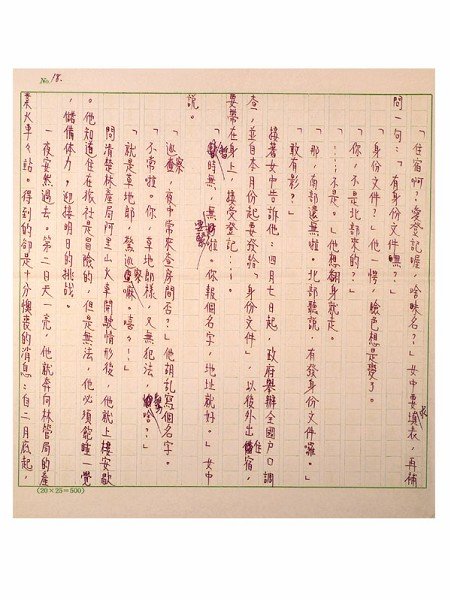 No. 18.
「住宿啊?愛登記喔,啥咪名?」女中要填表,再補
問一句:「有身份文件嘸?」
「身份文件?」他一愕,臉色想是變了。
「你,不是北部來的?」
「……不是。」他想翻身就走。
「那,南部還無啦。北部聽說,有發身份文件囉。」
「敢有影?」
接著女中告訴他:四月七日起,政府舉辦全國戶口調
查,並自本月份起要發給「身份文件」,以後外出住宿,
要帶在身上,接受登記……。
「暫時無,無要緊啦。你報個名字,地址就好。」女中
說。
「巡查,夜中常來查房間否?」他胡亂寫個名字。
「不常啦。你,草地郎樣,又無犯法,驚啥?」
「就是草地郎,驚巡察嘛。嘻々……」
問清楚林產局阿里山火車開駛情形後,他就上樓安歇
。他知道住在旅社是冒險的,但是無法,他必須飽睡一覺
,儲備体力,迎接明日的挑战。
一夜安然過去。第二日天一亮,他就奔向林管局的產
業火車々站。得到的卻是十分懊喪的消息:自二月底起,
(20×25=500)